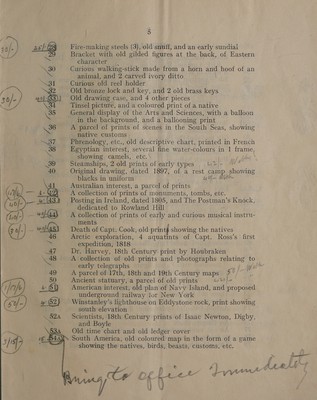 5
Fire-making steels (3), old snuff, and an early sundial
29 Bracket with old gilded figures at the back, of Eastern
character
30 Curious walking-stick made from a horn and hoof of an
animal, and 2 carved ivory ditto
31 Curious old reel holder
32 Old bronze lock and key, and 2 old brass keys
33 Old drawing case, and 4 other pieces
34 Tinsel picture, and a coloured print of a native
35 General display of the Arts and Sciences, with a balloon
in the background, and a ballooning print
36 A parcel of prints of scenes in the South Seas, showing
native customs
37 Phrenology, etc., old descriptive chart, printed in French
38 Egyptian interest, several fine water-colours in 1 frame,
showing camels, etc.
39 Steamships, 2 old prints of early types
40 Original drawing, dated 1897, of a rest camp showing
blacks in uniform
41 Australian interest, a parcel of prints
42 A collection of prints of monuments, tombs, etc.
43 Posting in Ireland, dated 1805, and The Postman's Knock,
dedicated to Rowland Hill
44 A collection of prints of early and curious musical instru-
ments
45 Death of Capt. Cook, old prints showing the natives
46 Arctic exploration, 4 aquatints of Capt. Ross's first
expedition, 1818
47 Dr. Harvey, 18th Century print by Houbraken
48 A collection of old prints and photographs relating to
early telegraphs
49 A parcel of 17th, 18th and 19th Century maps
50 Ancient statuary, a parcel of old prints
51 American interest, old plan of Navy Island, and proposed
underground railway for New York
52 Winstanley's lighthouse on Eddystone rock, print showing
south elevation
52A Scientists, 18th Century prints of Issac Newton, Digby,
and Boyle
53A Old time chart and old ledger cover
54A South America, old coloured map in the form of a game
showing the natives, birds, beasts, customs, etc.
Bring to office Immediately